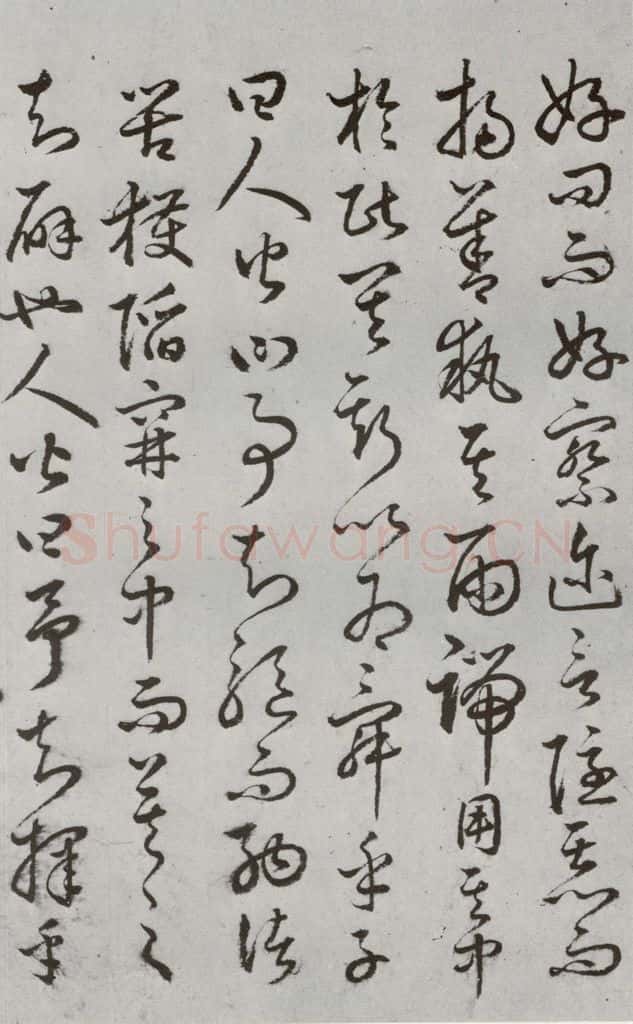 好問而好察迩言隱惡而
揚善執其兩端用其中
於民其斯以為舜乎子
曰人皆曰予知驅而納諸
罟擭陷穽之中而莫之
知辟也人皆曰予知擇乎
Shufawang.CN